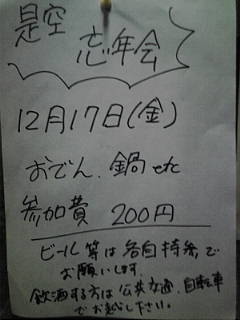 是空
忘年会
12月17日(金)
おでん、鍋etc
参加費 200円
ビール等は各自持参で
お願いします
飲酒する方は公共交通、自転車
でお越し下さい。